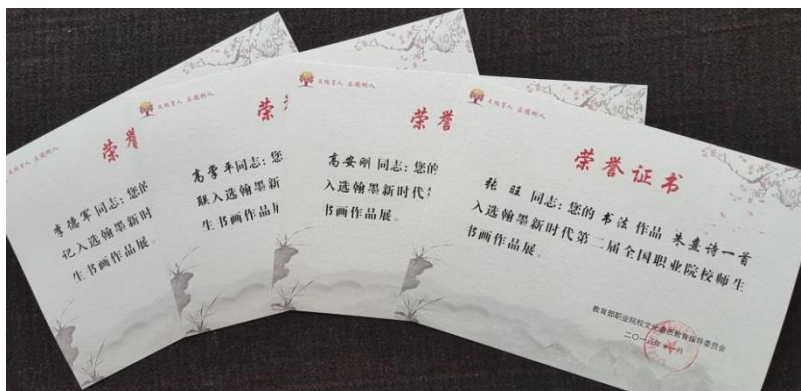 立德树人
荣
李德军同志：您的
记入选翰墨新时
生书画作品展。
荣
高雪平同志：您
联入选翰墨新
生书画作品
荣誉
高安刚同志：您的
入选翰墨新时代
书画作品展。
荣誉证书
张旺 同志：您的 书法 作品 朱熹诗一首
入选翰墨新时代第二届全国职业院校师生
书画作品展。
教育部职业院校文化素质教育指导委员会